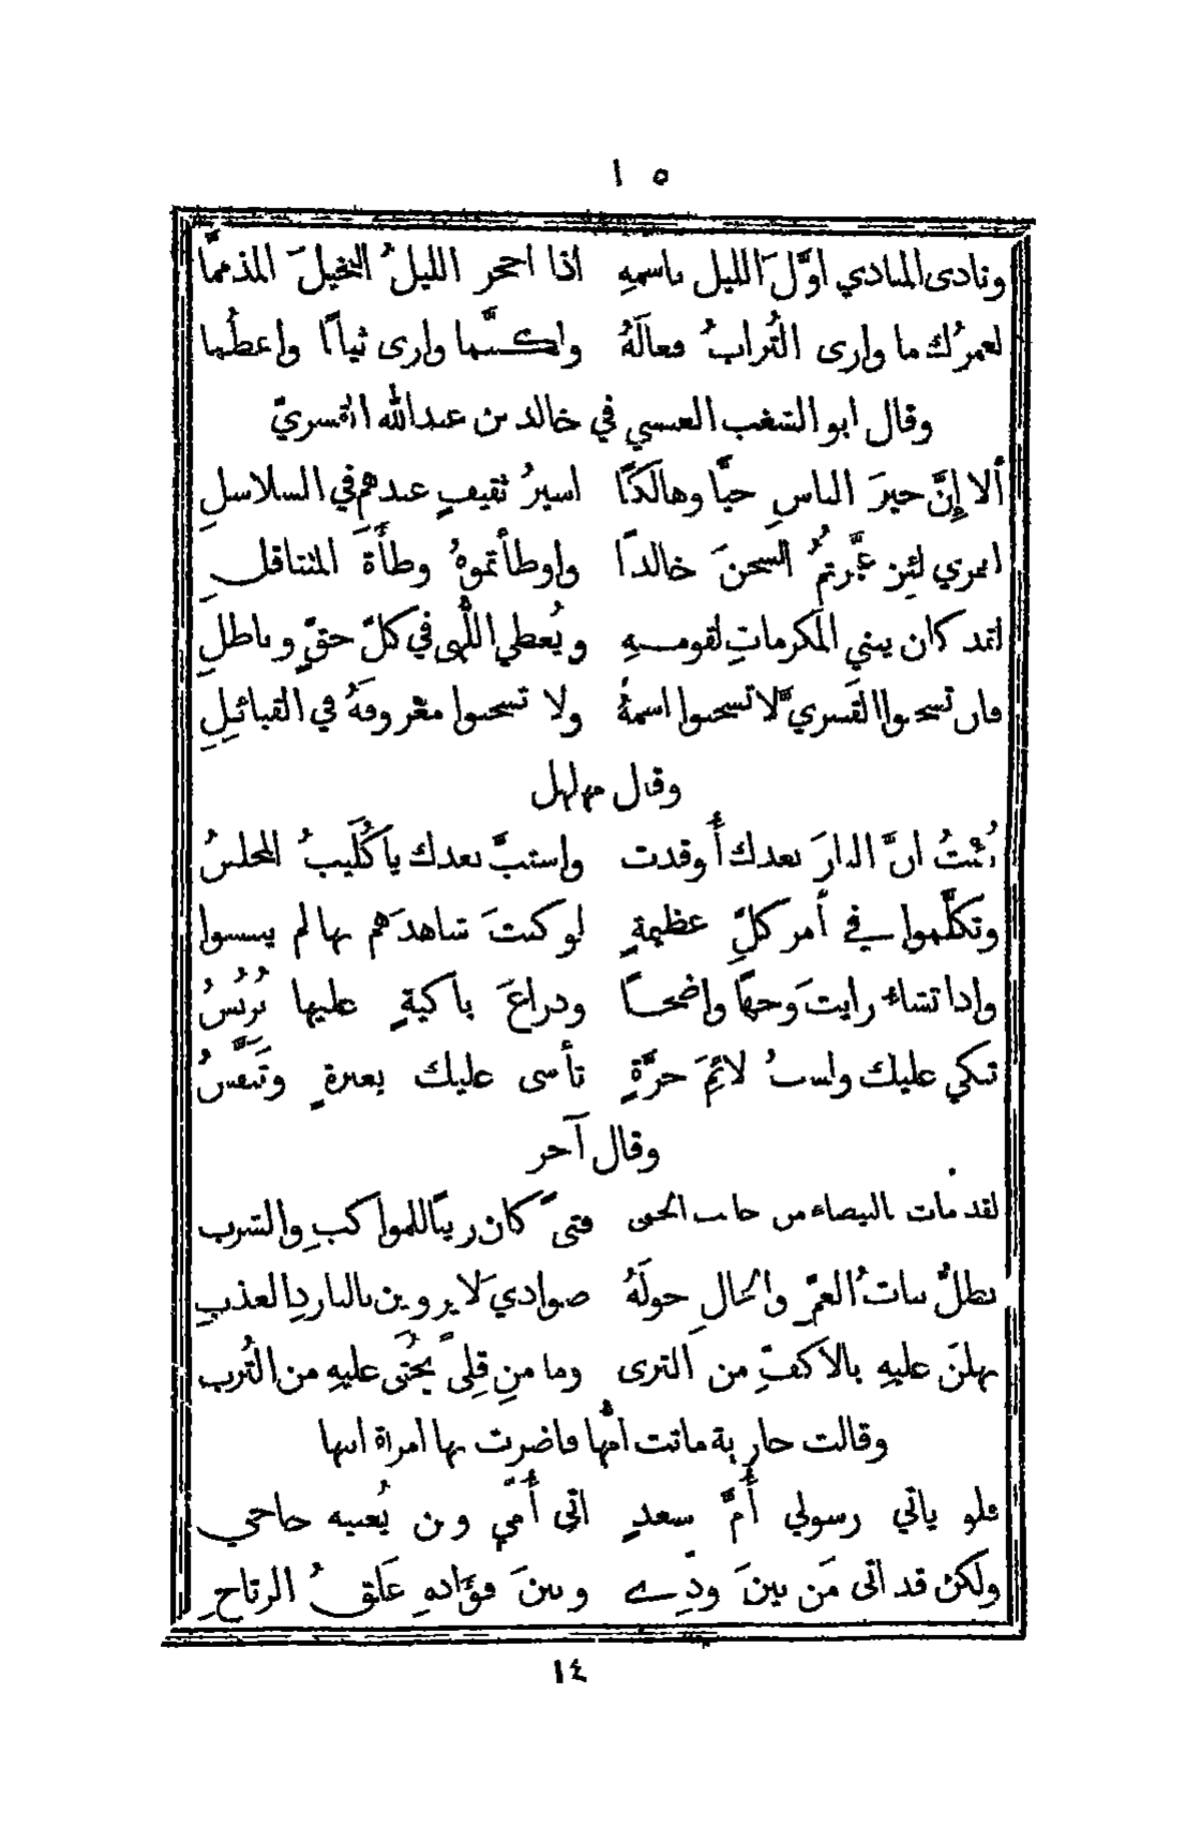 ١٠٥
ونادى المنادي اوَّلَ الليل باسمهِ اذا احجر الليلُ البخيلَ المذمما
لعمرُك ما وارى التُرابُ فعالَهُ ولكنَّما وارى ثيابًا واعظُما
وقال ابو الشغب العبسي في خالد بن عبدالله القسريّ
ألا إِنَّ خيرَ الناسِ حيًّا وهالكًا اسيرُ ثقيفٍ عندهم في السلاسلِ
لعمري لئِن عمَّرتمُ السجنَ خالدًا واوطأتموهُ وطأَةَ المتثاقلِ
لقد كان يبني المكرماتِ لقومهِ ويُعطي اللُّهى في كلّ حقٍّ وباطلِ
فان تسجنوا القَسريَّ لا تسجنوا اسمهُ ولا تسجنوا معْروفهُ في القبائلِ
وقال مهلهل
نُبئتُ انَّ النارَ بعدك أُوقدت واستبَّ بعدك يا كُلَيبُ المجلسُ
وتكلَّموا في أمر كلِّ عظيمةٍ لو كنتَ شاهدَهم بها لم ينبسوا
واذا تشاءُ رايتَ وجهًا واضحًا وذراعَ باكيةٍ عليها بُرنُسُ
تبكي عليك ولستُ لائِمَ حرَّةٍ تأسى عليك بعبرةٍ وتَنفَّسُ
وقال آخر
لقد مات بالبيضاء من جانب الحمى فتىً كان زينًا للمواكبِ والشرب
تظلُّ بناتُ العمّ والخالِ حولَهُ صواديَ لا يروين بالباردِ العذبِ
يهلنَ عليهِ بالاكفِّ من الثرى وما منِ قِلىً يُحثَى عليهِ من التُرب
وقالت جارية ماتت امُّها فاضرت بها امراة ابيها
فلو ياتي رسولي أُمَّ سعدٍ اتى أُمّي ومن يُعنيه حاجتي
ولكن قد اتى مَن بينَ ودّي وبينَ فؤَادهِ غَلقُ الرتاحِ
١٤